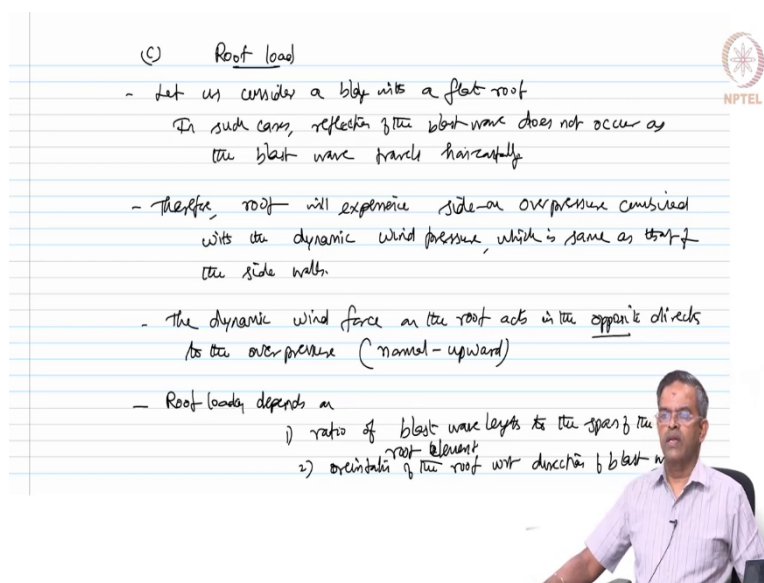 (C) Roof load
- Let us consider a bldg with a flat roof
In such cases, reflection of the blast wave does not occur as
the blast wave travels horizontally
- Therefore, roof will experience side-on overpressure combined
with the dynamic wind pressure, which is same as that of
the side walls.
- The dynamic wind force on the roof acts in the opposite direction
to the overpressure (normal - upward)
- Roof loading depends on
1) ratio of blast wave length to the span of the
roof element
2) orientation of the roof wrt direction of blast
NPTEL